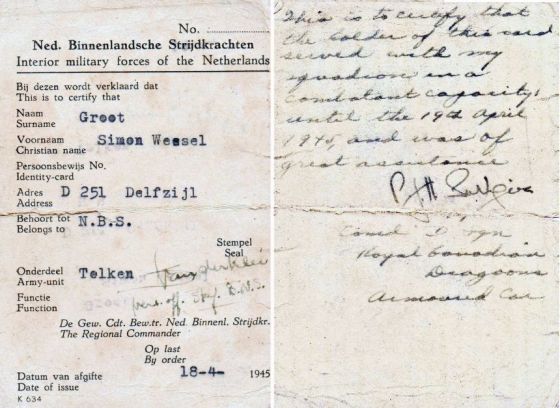 No.
Ned. Binnenlandsche Strijdkrachten
Interior military forces of the Netherlands
Bij dezen wordt verklaard dat
This is to certify that
Naam
Surname
Groot
Voornaam
Christian name
Simon Wessel
Persoonsbewijs No.
Identity-card
Adres
Address
D 251 Delfzijl
Behoort tot
Belongs to
N.B.S.
Stempel
Seal
Onderdeel
Army-unit
Telken
Functie
Function
De Gew. Cdt. Bew.tr. Ned. Binnenl. Strijdkr.
The Regional Commander
Op last
By order
Datum van afgifte
Date of issue
18-4- 1945
K 634
This is to certify that
the holder of this card
served with my
squadron in a
combatant capacity
until the 19th April
1945, and was of
great assistance
Comd D
Royal Canadian
Dragoons
Armoured Car